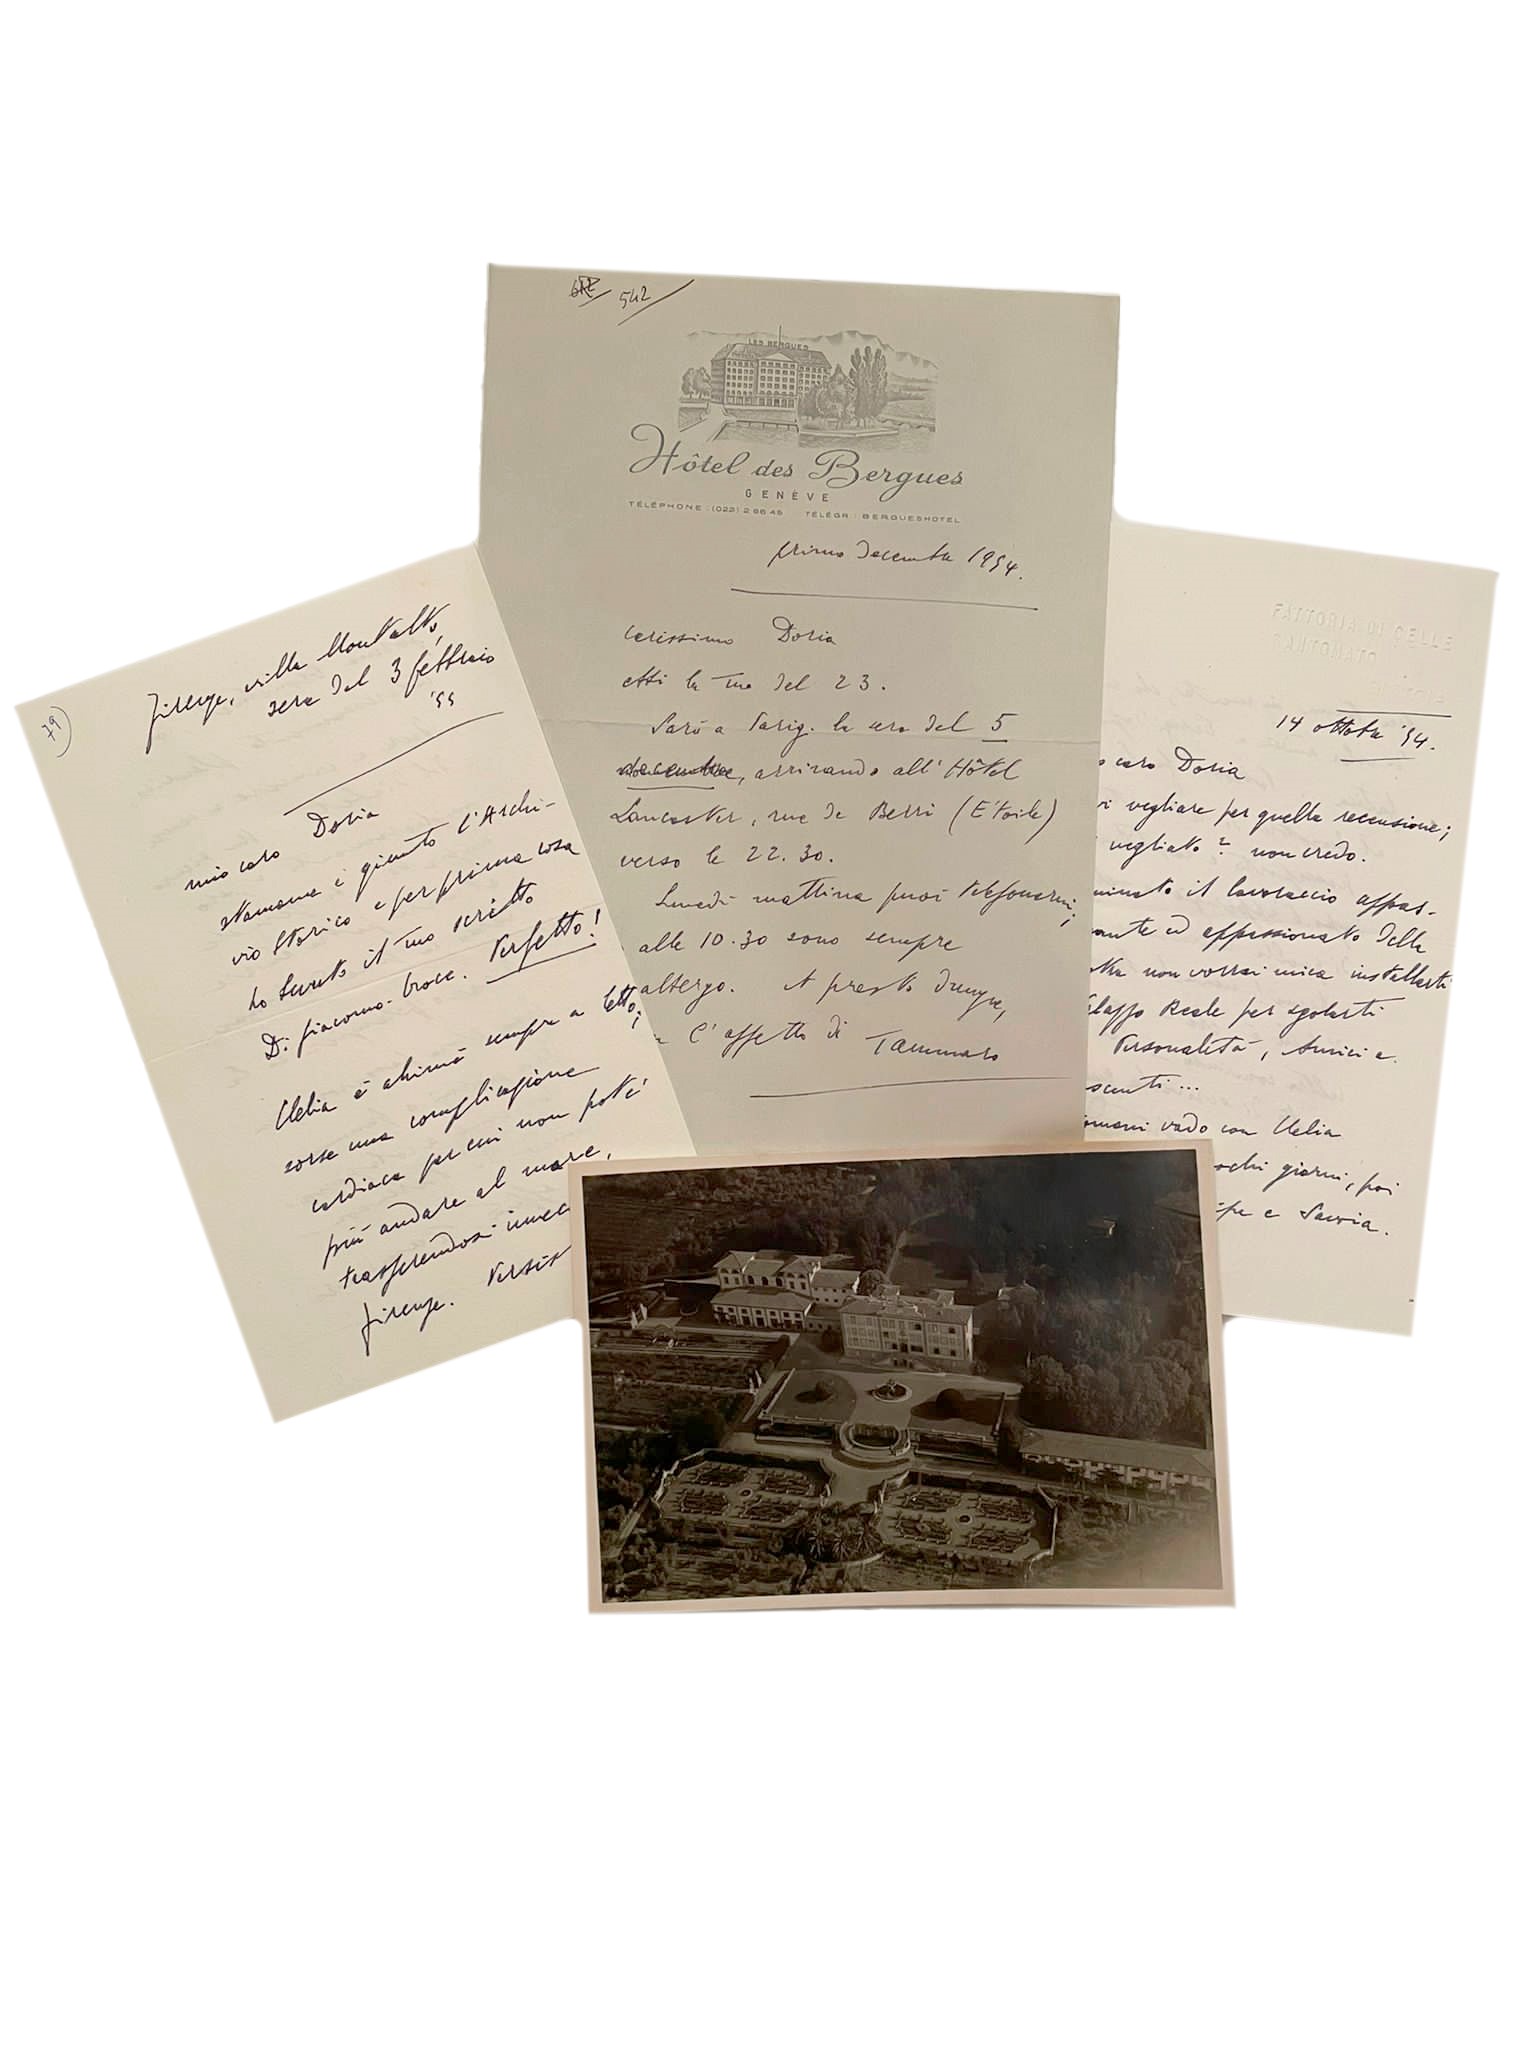 79
Firenze, villa Montalto,
sera del 3 febbraio
'55
mio caro Doria
stamane è giunto l'Archi-
vio Storico e per prima cosa
ho levato il tuo scritto
Di Giacomo-Croce. Perfetto!
Clelia è ahimè sempre a letto;
sorse una complicazione
cardiaca per cui non poté
più andare al mare,
trasferendosi invec
Firenze.
542
LES BERGUES
Hôtel des Bergues
GENÈVE
TÉLÉPHONE: (022) 2 66 45 TÉLÉGR: BERGUESHOTEL
primo decembre 1954.
carissimo Doria
ebbi la tua del 23.
Sarò a Parigi la sera del 5
decembre, arrivando all'Hôtel
Lancaster, rue de Berri (Étoile)
verso le 22.30.
Lunedì mattina puoi telefonarmi;
alle 10.30 sono sempre
albergo. A presto dunque,
l'affetto di Tammaro
FATTORIA DI CELLE
14 ottobre '54.
caro Doria
vi vegliare per quella recensione;
vegliato? non credo.
minato il lavoraccio appas-
nante ed appassionato della
non vorrai mica installarti
Palazzo Reale per sgolarti
Personalità, Amici e
scenti...
omani vado con Clelia
ochi giorni, poi
e Savoia.